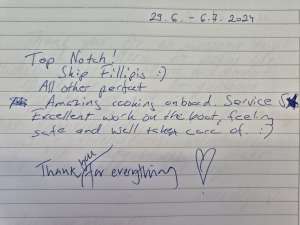 29.6. - 6.7. 2024
Top Notch!
Skip Fillipis :)
All other perfect
Amazing cooking onboard. Service 5★
Excellent work on the boat, feeling
safe and well taken care of. :)
Thank you for everything ♡